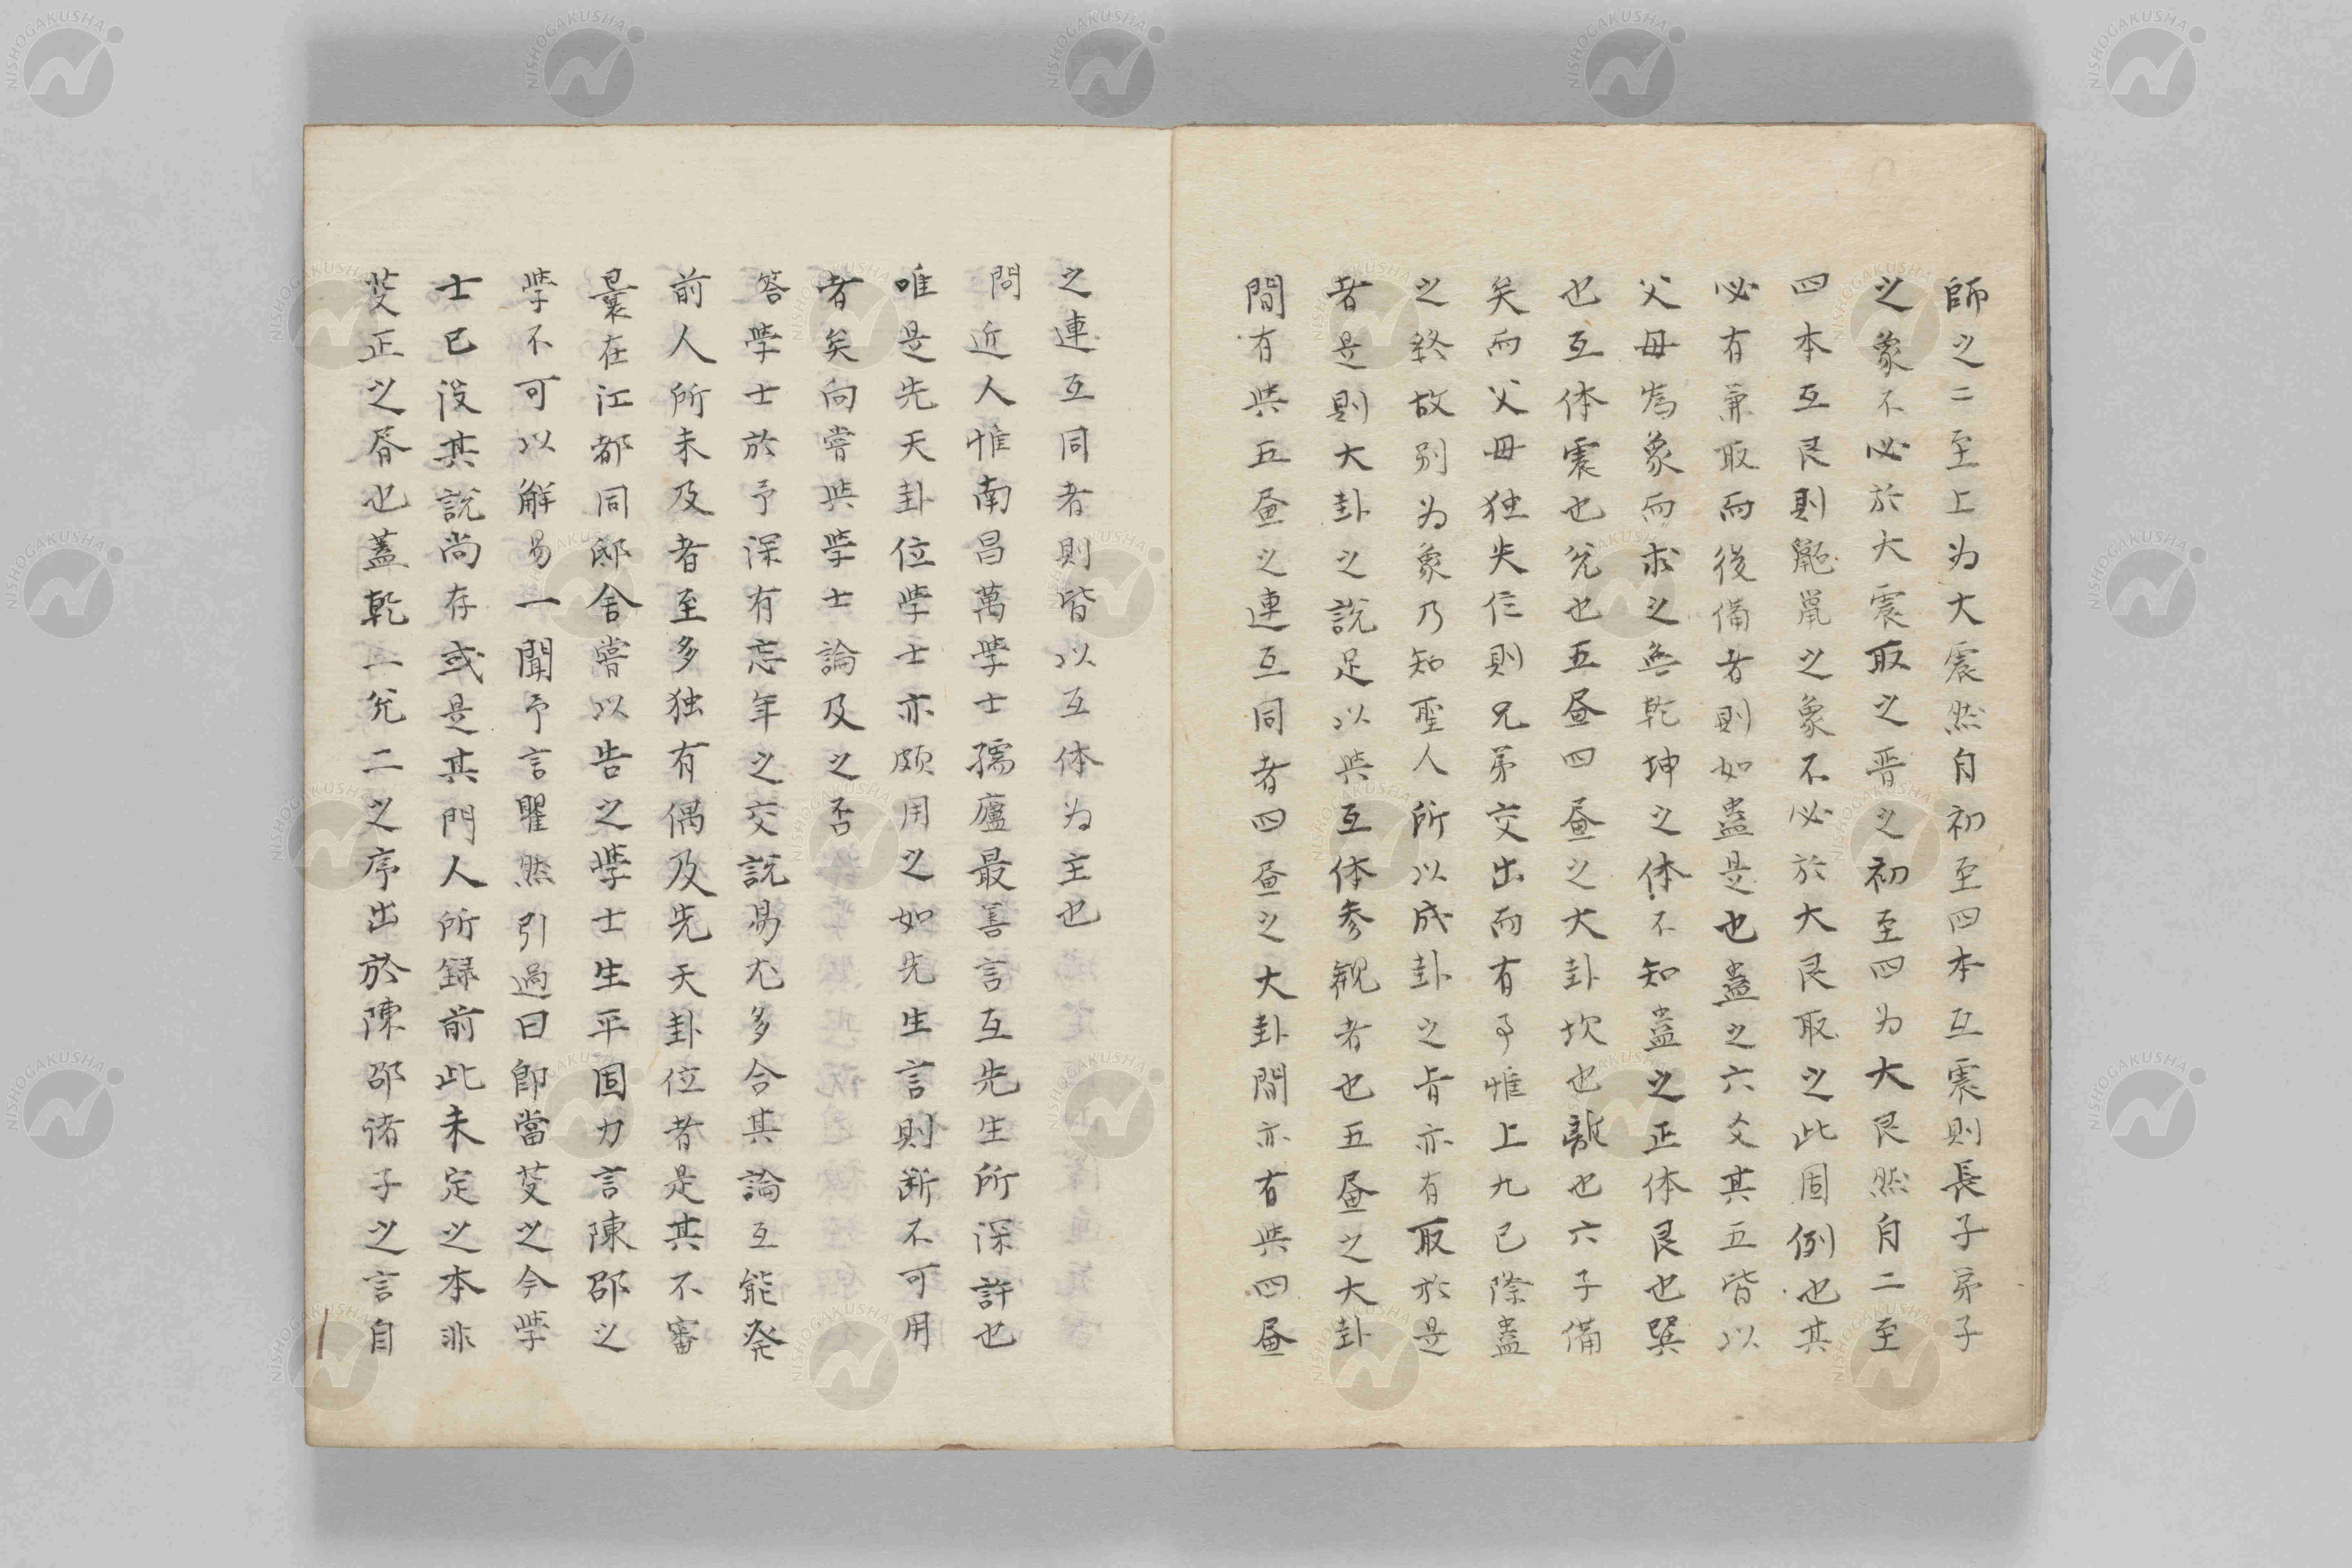 師之二至上为大震然自初至四本互震則長子弟子
之象不必於大震取之晋之初至四为大艮然自二至
四本互艮則鼫鼠之象不必於大艮取之此固例也其
必有兼取而後備者則如蠱是也蠱之六爻其五皆以
父母為象而求之無乾坤之体不知蠱之正体艮也巽
也互体震也兌也五昼四昼之大卦坎也離也六子備
矣而父母独失位則兄弟交出而有事惟上九已除蠱
之終故别为象乃知聖人所以成卦之旨亦有取於是
者是則大卦之説足以與互体参観者也五昼之大卦
間有與五昼之連互同者四昼之大卦間亦有與四昼
之連互同者則皆以互体为主也
問近人惟南昌萬学士孺廬最善言互先生所深許也
唯是先天卦位学士亦頗用之如先生言則断不可用
者矣向嘗與学士論及之否
答学士於予深有忘年之交説易尤多合其論互能発
前人所未及者至多独有偶及先天卦位者是其不審
曩在江都同邸舎嘗以告之学士生平固力言陳邵之
学不可以解易一聞予言瞿然引過曰即當芟之今学
士已没其説尚存或是其門人所録前此未定之本非
芟正之𦙃也蓋乾一兌二之序出於陳邵諸子之言自
NISHOGAKUSHA